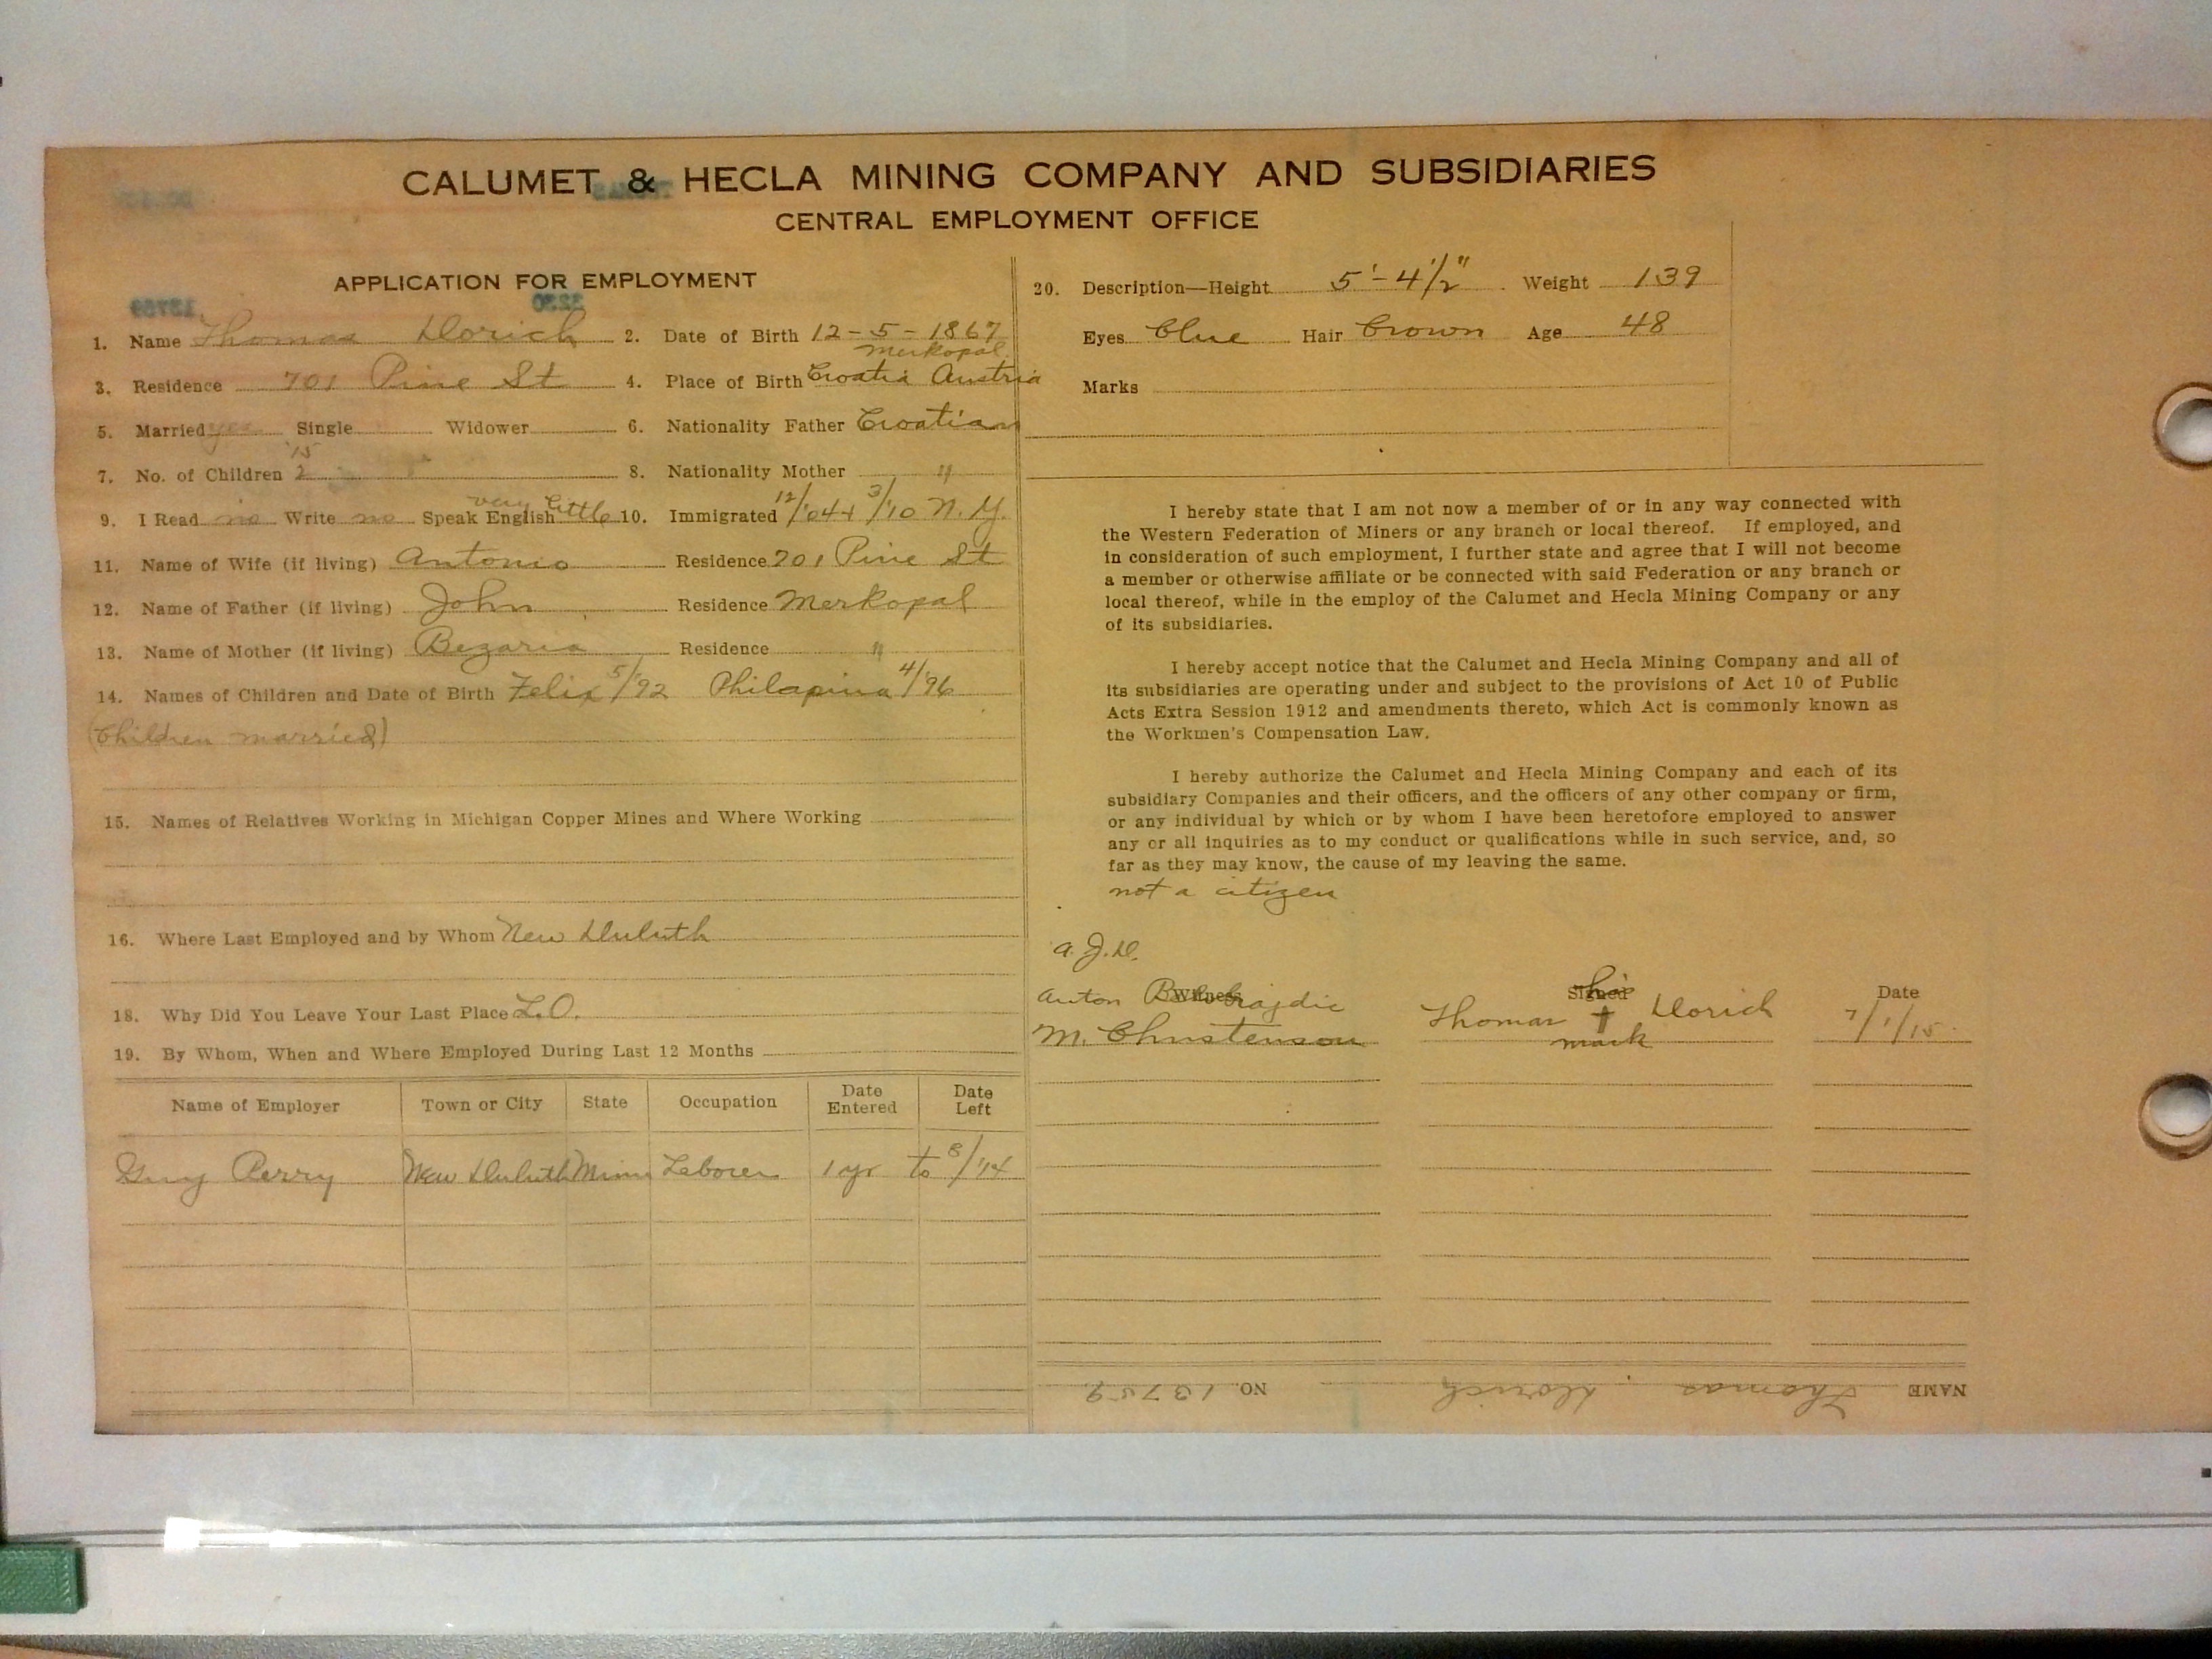 CALUMET & HECLA MINING COMPANY AND SUBSIDIARIES
CENTRAL EMPLOYMENT OFFICE
APPLICATION FOR EMPLOYMENT
13759
1. Name Thomas Dorich 2. Date of Birth 12-5-1867
Merkopal
3. Residence 701 Pine St 4. Place of Birth Croatia Austria
5. Married yes Single Widower 6. Nationality Father Croatian
7. No. of Children 2 8. Nationality Mother "
very little
9. I Read no Write no Speak English 10. Immigrated 12/04 + 3/10 N.Y.
11. Name of Wife (if living) Antonio Residence 701 Pine St
12. Name of Father (if living) John Residence Merkopal
13. Name of Mother (if living) Bezaria Residence "
14. Names of Children and Date of Birth Felix 5/92 Philapina 4/96
(Children married)
15. Names of Relatives Working in Michigan Copper Mines and Where Working
16. Where Last Employed and by Whom New Duluth
18. Why Did You Leave Your Last Place L.O.
19. By Whom, When and Where Employed During Last 12 Months
Name of Employer Town or City State Occupation Date Entered Date Left
Guy Perry New Duluth Minn Laborer 1 yr to 8/14
20. Description—Height 5'-4 1/2" Weight 139
Eyes Blue Hair Brown Age 48
Marks
I hereby state that I am not now a member of or in any way connected with
the Western Federation of Miners or any branch or local thereof. If employed, and
in consideration of such employment, I further state and agree that I will not become
a member or otherwise affiliate or be connected with said Federation or any branch or
local thereof, while in the employ of the Calumet and Hecla Mining Company or any
of its subsidiaries.
I hereby accept notice that the Calumet and Hecla Mining Company and all of
its subsidiaries are operating under and subject to the provisions of Act 10 of Public
Acts Extra Session 1912 and amendments thereto, which Act is commonly known as
the Workmen's Compensation Law.
I hereby authorize the Calumet and Hecla Mining Company and each of its
subsidiary Companies and their officers, and the officers of any other company or firm,
or any individual by which or by whom I have been heretofore employed to answer
any or all inquiries as to my conduct or qualifications while in such service, and, so
far as they may know, the cause of my leaving the same.
not a citizen
A.J.D.
Witness Signed Date
Anton his
M. Christenson Thomas † Dorich 7/1/15
mark
NAME Thomas Dorich NO. 13759